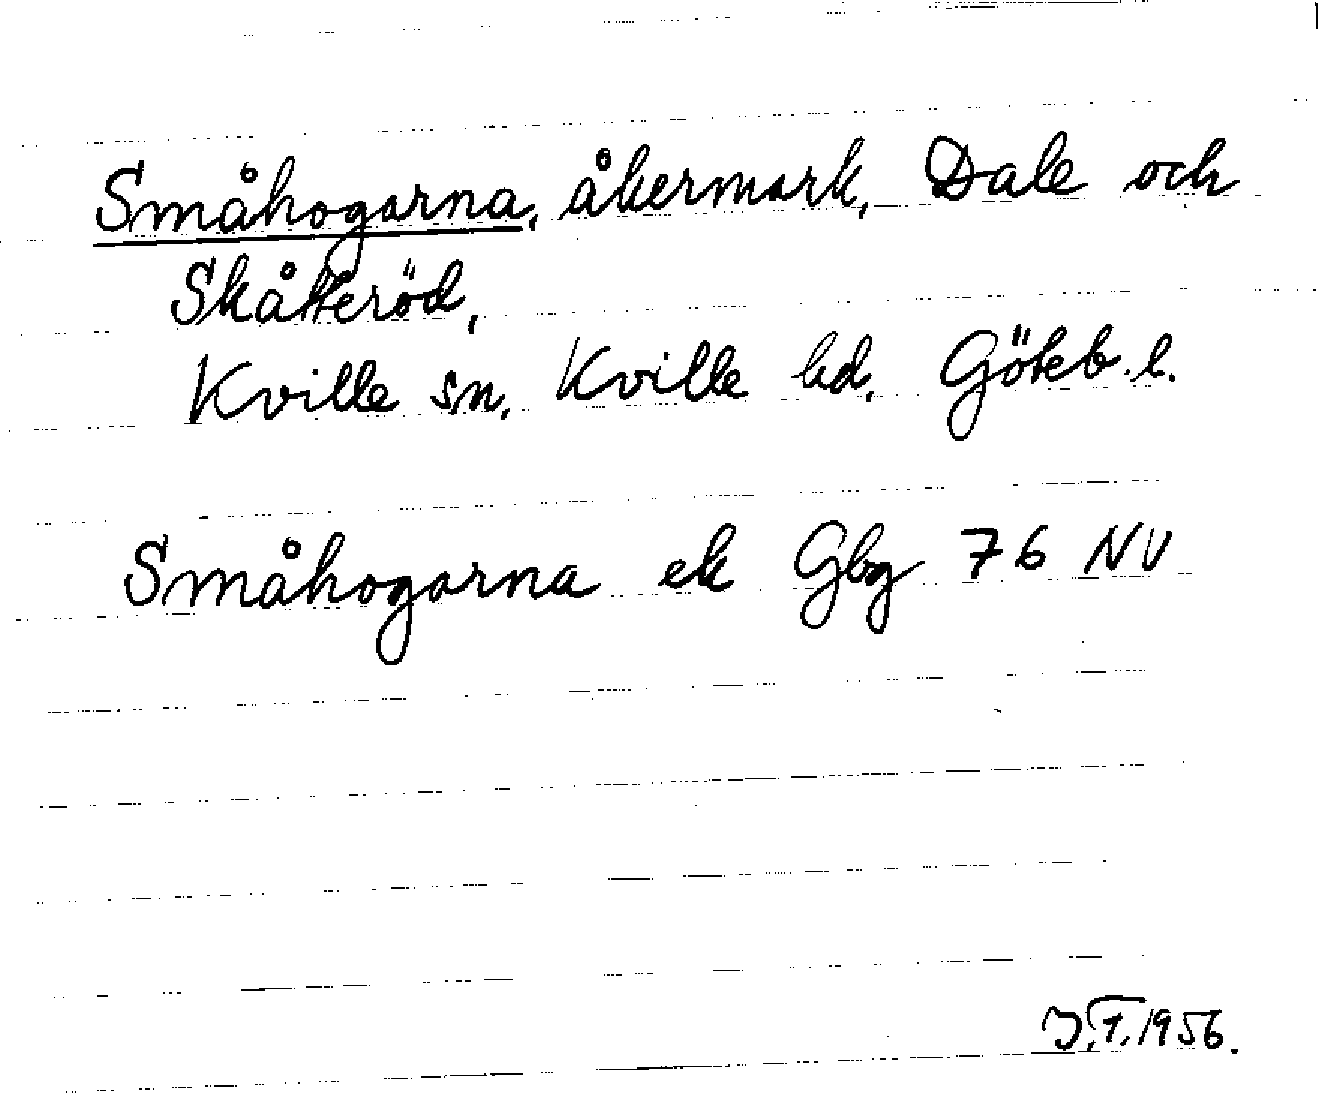 Småhogarna, åkermark, Dale och
Skåtteröd,
Kville sn, Kville hd, Göteb. l.
Småhogarna ek Gbg 76 NV
J.T. 1956.